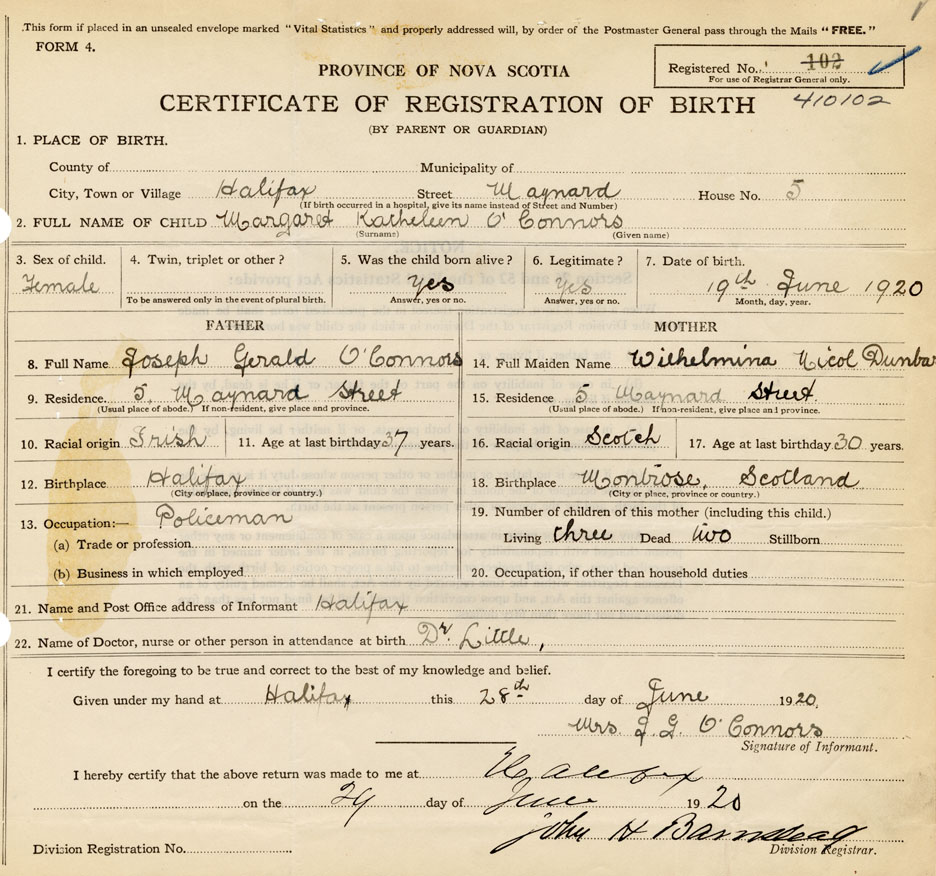 This form if placed in an unsealed envelope marked "Vital Statistics" and properly addressed will, by order of the Postmaster General pass through the Mails "FREE."
FORM 4.
Registered No. 102
For use of Registrar General only.
PROVINCE OF NOVA SCOTIA
CERTIFICATE OF REGISTRATION OF BIRTH 410102
(BY PARENT OR GUARDIAN)
1. PLACE OF BIRTH.
County of Municipality of
City, Town or Village Halifax Street Maynard House No. 5
(If birth occurred in a hospital, give its name instead of Street and Number)
2. FULL NAME OF CHILD Margaret Katheleen O'Connors
(Surname) (Given name)
3. Sex of child. 4. Twin, triplet or other? 5. Was the child born alive? 6. Legitimate? 7. Date of birth.
Female Yes Yes 19th June 1920
To be answered only in the event of plural birth. Answer, yes or no. Answer, yes or no. Month, day, year.
FATHER MOTHER
8. Full Name Joseph Gerald O'Connors 14. Full Maiden Name Wilhelmina Nicol Dunbar
9. Residence. 5, Maynard Street 15. Residence 5 Maynard Street.
(Usual place of abode.) If non-resident, give place and province. (Usual place of abode.) If non-resident, give place and province.
10. Racial origin Irish 11. Age at last birthday 37 years. 16. Racial origin Scotch 17. Age at last birthday 30 years.
12. Birthplace Halifax 18. Birthplace Montrose, Scotland
(City or place, province or country.) (City or place, province or country.)
13. Occupation:— Policeman 19. Number of children of this mother (including this child.)
(a) Trade or profession Living three Dead two Stillborn
(b) Business in which employed 20. Occupation, if other than household duties
21. Name and Post Office address of Informant Halifax
22. Name of Doctor, nurse or other person in attendance at birth Dr. Little,
I certify the foregoing to be true and correct to the best of my knowledge and belief.
Given under my hand at Halifax this 28th day of June 1920.
Mrs. J. G. O'Connors
Signature of Informant.
I hereby certify that the above return was made to me at Halifax
on the 29 day of June 1920
John H Barnstead
Division Registration No. Division Registrar.